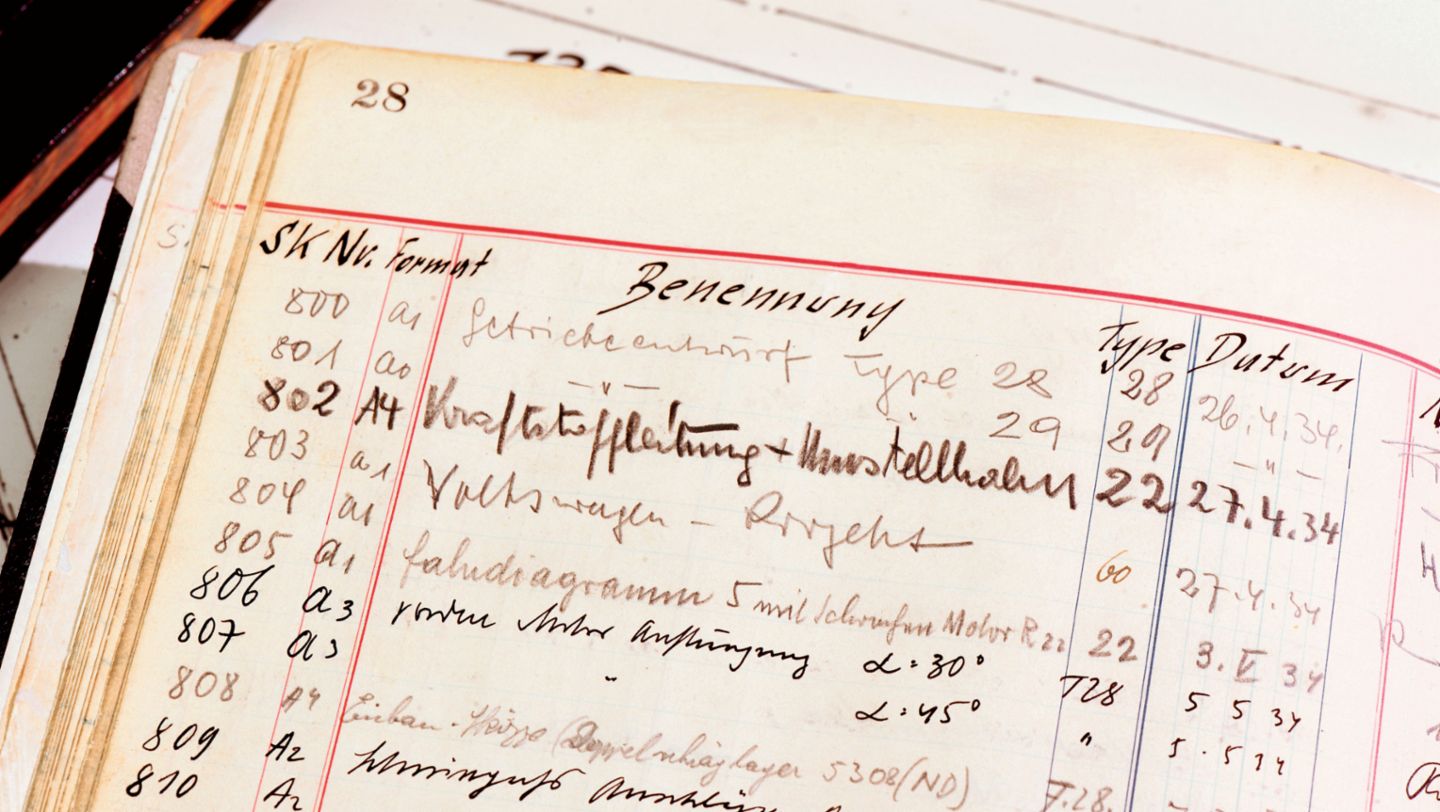 28
SK Nr. Format Benennung Type Datum
800 a1 Getriebeentwurf Type 28 28 26.4.34.
801 a0 — " — 29 29 — " —
802 A4 Kraftstoffleitung + Umstellhahn 22 27.4.34
803 a1 Volkswagen – Projekt 60 27.4.34
804 a1 Fahrdiagramm 5 mit Motor R22 22 3. V 34
805 a1
806 a3 vordere Motor Aufhängung α = 30° T28 5 5 34
807 a3 " α = 45° " 5. 5 34
808 A4 Einbau-Skizze (Doppelschräglager 5308 (ND) T.28.
809 A2
810 A2